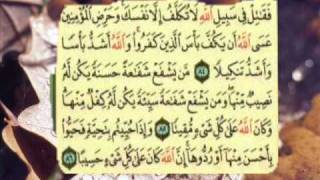 فَقَٰتِلْ فِى سَبِيلِ ٱللَّهِ لَا تُكَلَّفُ إِلَّا نَفْسَكَ وَحَرِّضِ ٱلْمُؤْمِنِينَ
عَسَى ٱللَّهُ أَن يَكُفَّ بَأْسَ ٱلَّذِينَ كَفَرُوا۟ وَٱللَّهُ أَشَدُّ بَأْسًا
وَأَشَدُّ تَنكِيلًا ٨٤ مَّن يَشْفَعْ شَفَٰعَةً حَسَنَةً يَكُن لَّهُۥ
نَصِيبٌ مِّنْهَا وَمَن يَشْفَعْ شَفَٰعَةً سَيِّئَةً يَكُن لَّهُۥ كِفْلٌ مِّنْهَا
وَكَانَ ٱللَّهُ عَلَىٰ كُلِّ شَىْءٍ مُّقِيتًا ٨٥ وَإِذَا حُيِّيتُم بِتَحِيَّةٍ فَحَيُّوا۟
بِأَحْسَنَ مِنْهَآ أَوْ رُدُّوهَآ إِنَّ ٱللَّهَ كَانَ عَلَىٰ كُلِّ شَىْءٍ حَسِيبًا ٨٦